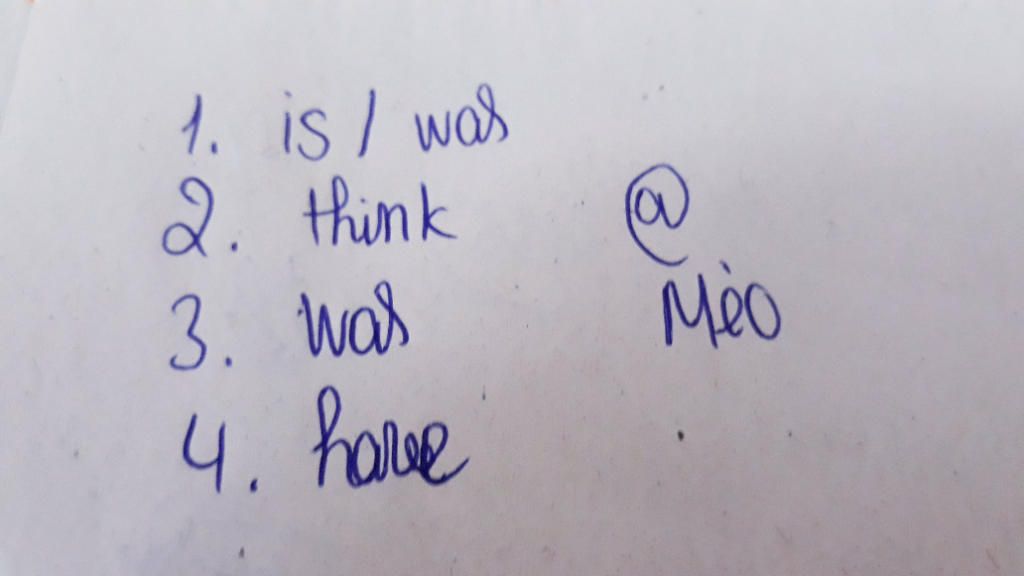 1. is / was
2. think
3. was
4. have
@
Mèo